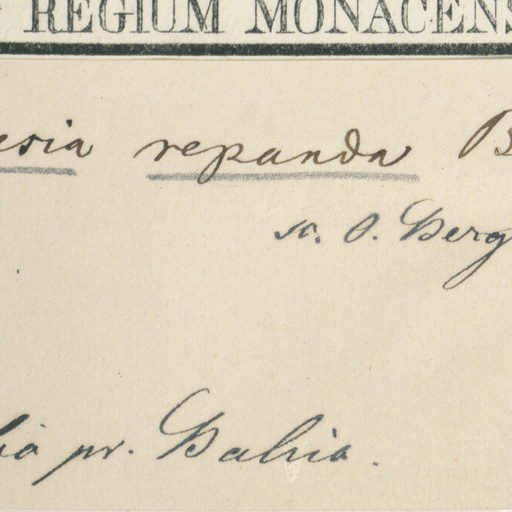 REGIUM MONACENS
esia repanda B
sc. O. Berg
ia pr. Bahia.